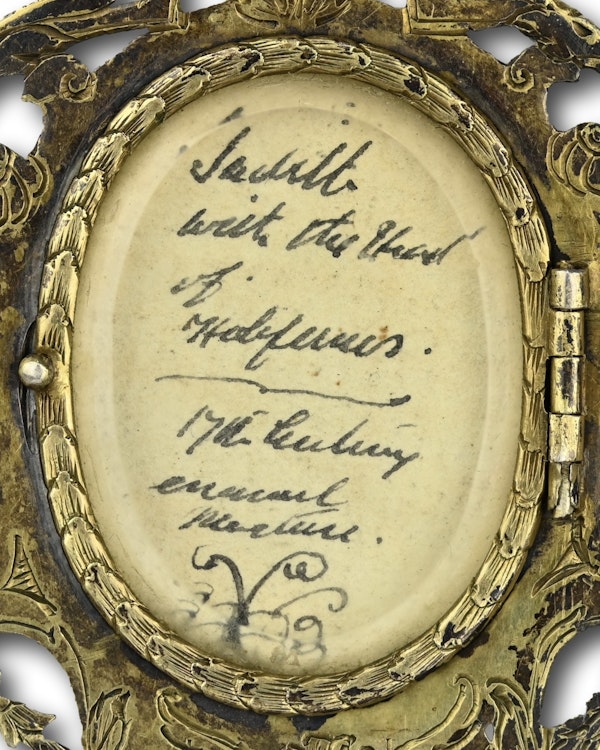 Judith
with the Head
of
Holofernes.
17th Century
enamel
miniature.